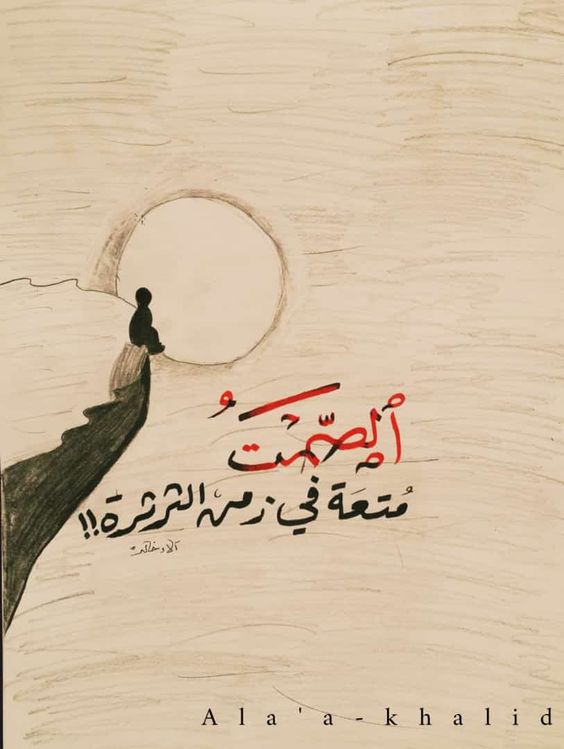 الصَّمتُ
مُتعَة في زمن الثرثرة!!
آلاء خالد
Ala'a-khalid